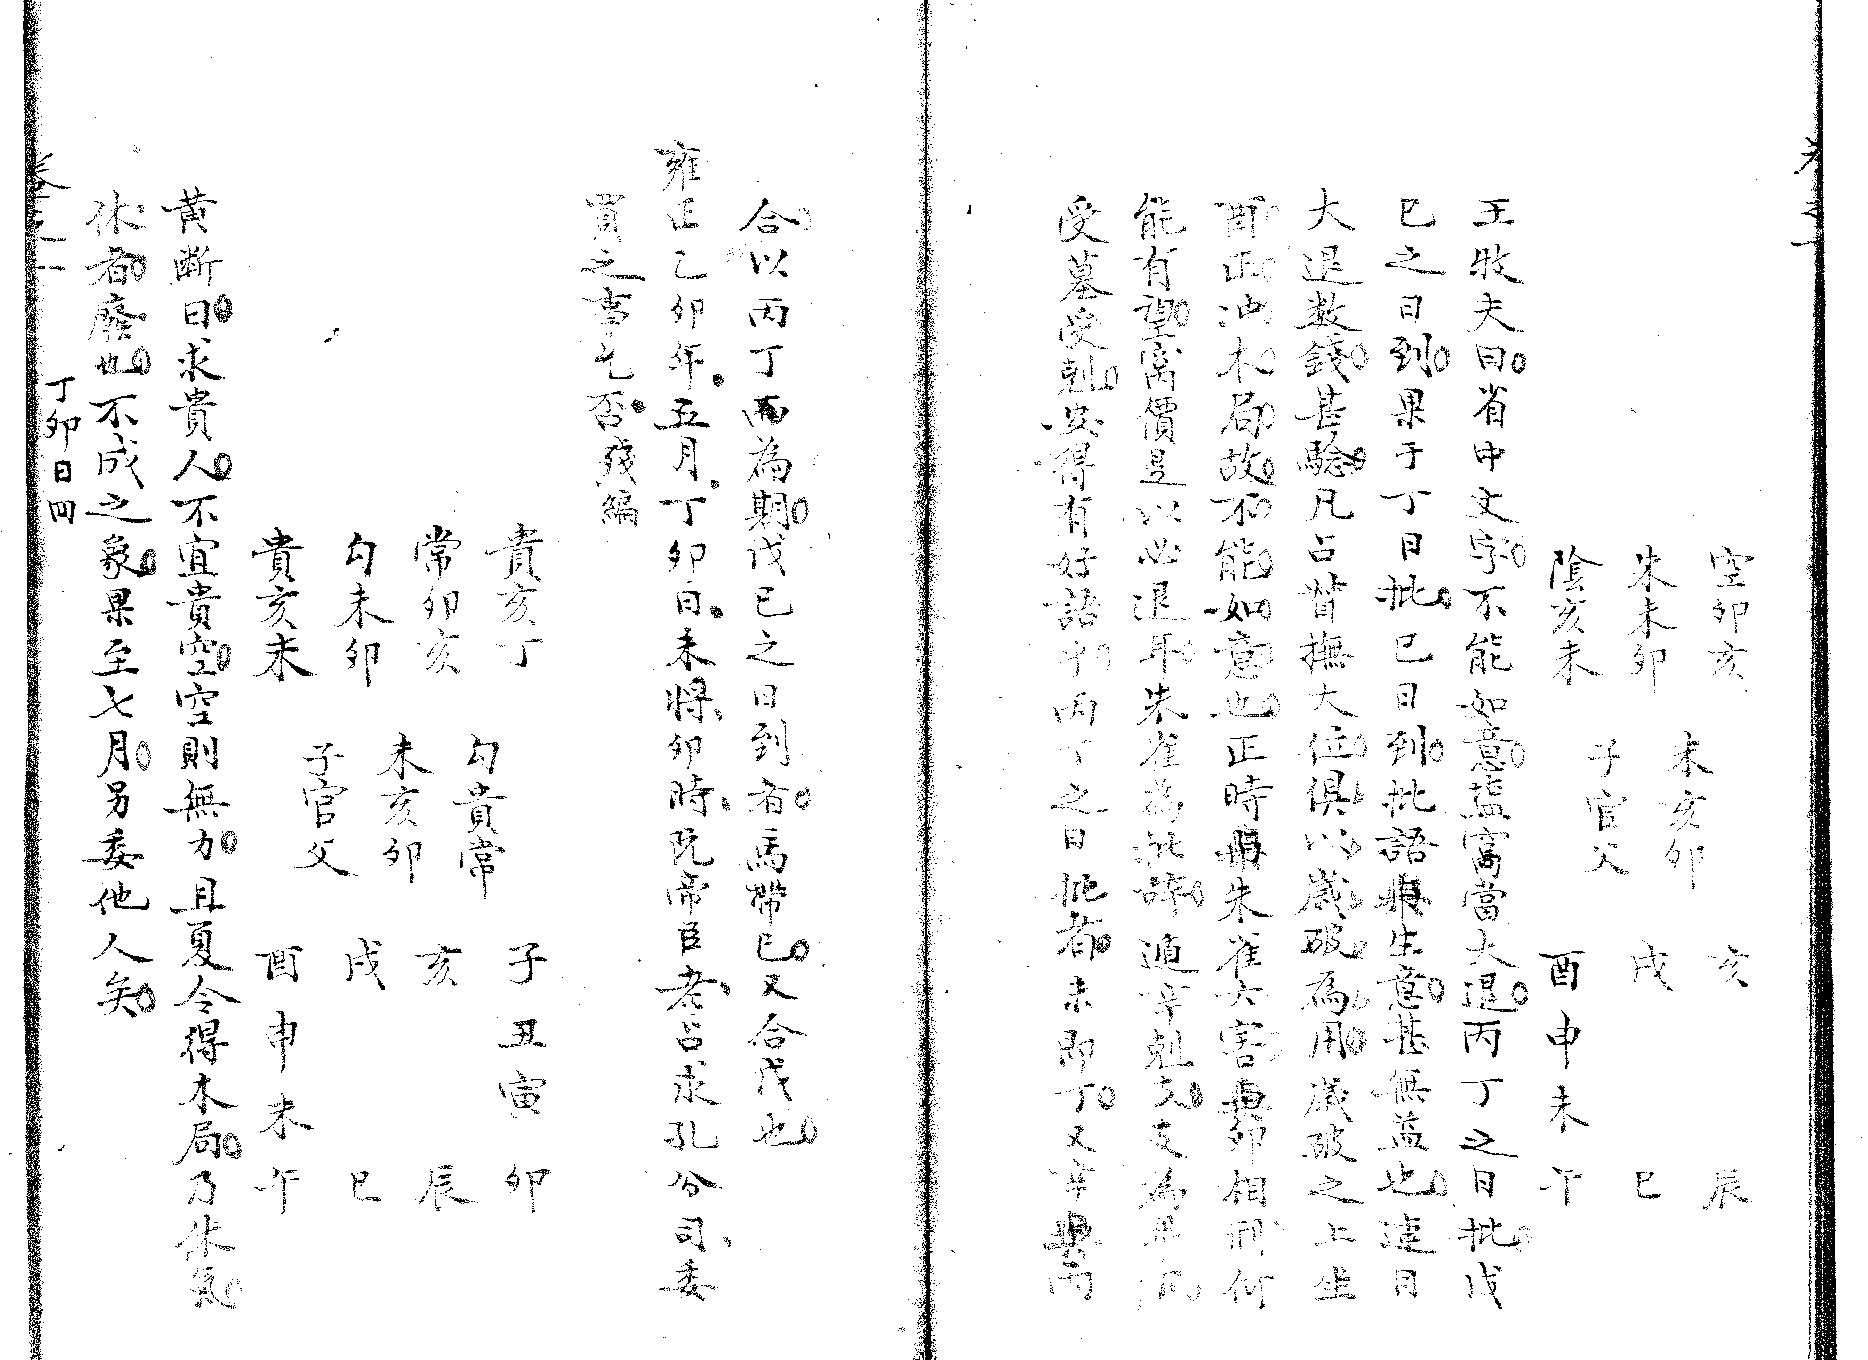 空卯亥
朱未卯
陰亥未
未亥卯
子官父
亥 辰
戌 巳
酉申未午
王牧夫曰省中文字不能如意盐窩當大退丙丁之日批戊
巳之日到果于丁日批巳日到批語與生意甚無益也這日
大退数錢甚驗凡占督撫大位俱以歲破為用歲破之上坐
酉正冲木局故不能如意也正時與朱雀六害與卯相刑何
能有望窩價是以必退耳朱雀為批辞遁辛尅支支為
受墓受尅安得有好語乎丙丁之日批者未即丁又辛與丙
合以丙丁而為期戊巳之日到者馬帶巳又合戊也
雍正乙卯年五月丁卯日未將卯時阮帝臣老占求孔分司委
買之事乞否殘編
貴亥丁
常卯亥
勾未卯
貴亥未
勾貴常
未亥卯
子官父
子丑寅卯
亥 辰
戌 巳
酉申未午
黄斷曰求貴人不宜貴空空則無力且夏令得木局乃休氣
休者廢也不成之象果至七月另委他人矣
丁卯日四